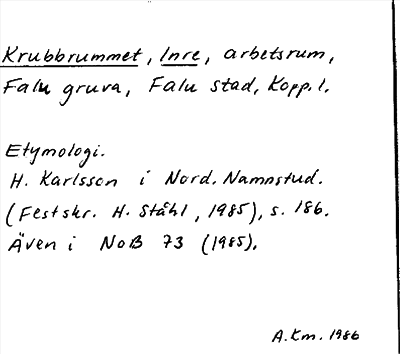 Krubbrummet, Inre, arbetsrum,
Falu gruva, Falu stad, Kopp. l.
Etymologi.
H. Karlsson i Nord. Namnstud.
(Festskr. H. Ståhl, 1985), s. 186.
Även i NoB 73 (1985).
A.Km. 1986